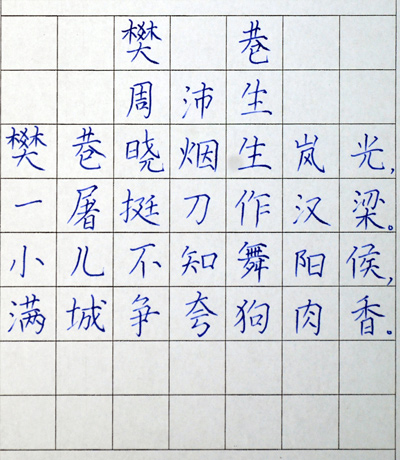 樊巷
周沛生
樊巷晓烟生岚光,
一屠挺刀作汉梁。
小儿不知舞阳侯,
满城争夸狗肉香。